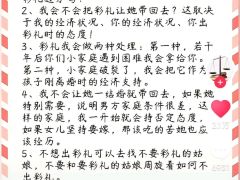 2、我会不会把彩礼让她带回去?这取决
于我的经济状况、你的经济状况、你出
彩礼时的态度!
3、彩礼我会做两种处理:第一种,若干
年后你们小家庭遇到困难我会拿给你。
第二种,小家庭破裂了,我会拿它作为
孩子闹离婚时的经济支持。
4、我不会让她一结婚就带回去,如果她
特别需要,说明男方家庭条件很差,这
样的家庭,我一开始就会持否定态度,
如果女儿坚持要嫁,那该吃的苦她也应
该经历。
5、不想出彩礼可以去找不要彩礼的姑
娘,不要和要彩礼的姑娘周旋着如何不
出彩礼!